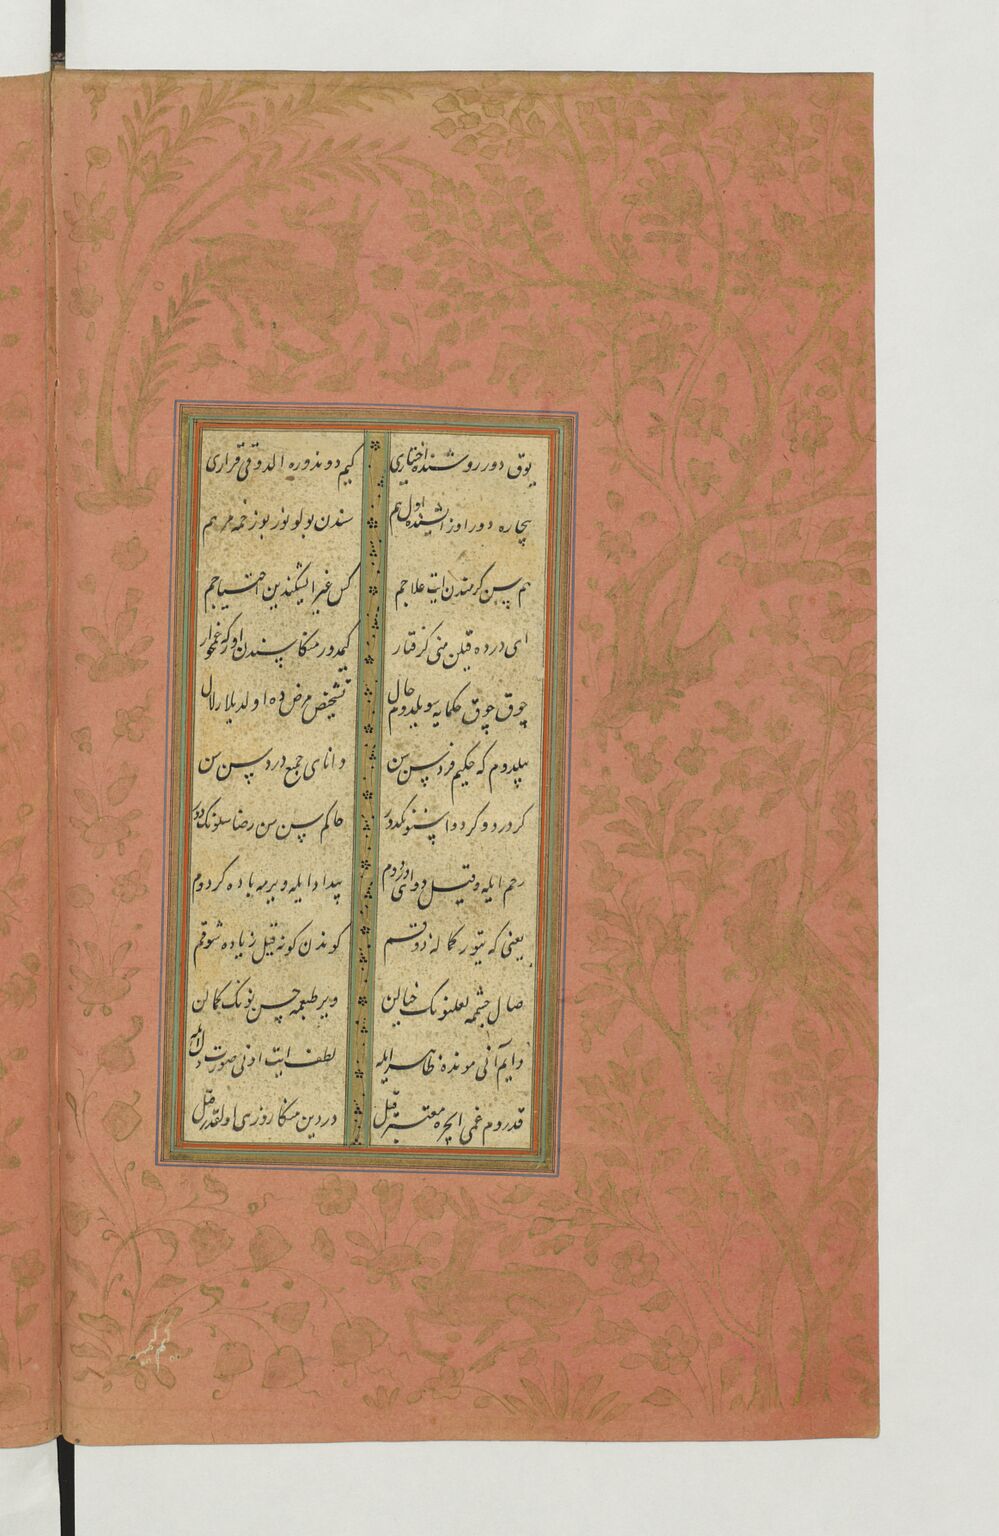 یوق دور روشنده اختیاری کیم دوندوره الدوقی قراری
بیچاره دور اوز ایشنده اول هم سندن بولونور بو زخمه مرهم
هم سن کرمندن ایت علاجم کس غیر ایشکندین احتیاجم
ای درده قیلن منی گرفتار کیمدور منکا سندن اوزکه غمخوار
چوق چوق حکمایه سویلدوم حال تشخیص مرض ده اولدیلار لال
بیلدوم که حکیم فرد سن سن دانای جمیع درد سن سن
گر درد و گر دوا سنونکدور حاکم سن سن رضا سنونکدور
رحم ایله و قیل دوای دردوم بیدادایله ویرمه باده گردوم
یعنی که یتور کماله ذوقم کوندن کونه قیل زیاده شوقم
صال چشممه لعلنونک خیالن ویر طبعمه حسننونک کمالن
دایم آنی مونده ظاهر ایله لطف ایت انی صورت دل ایله
قدروم غمی ایچره معتبر قیل دردین منکا روزی اولقدر قیل